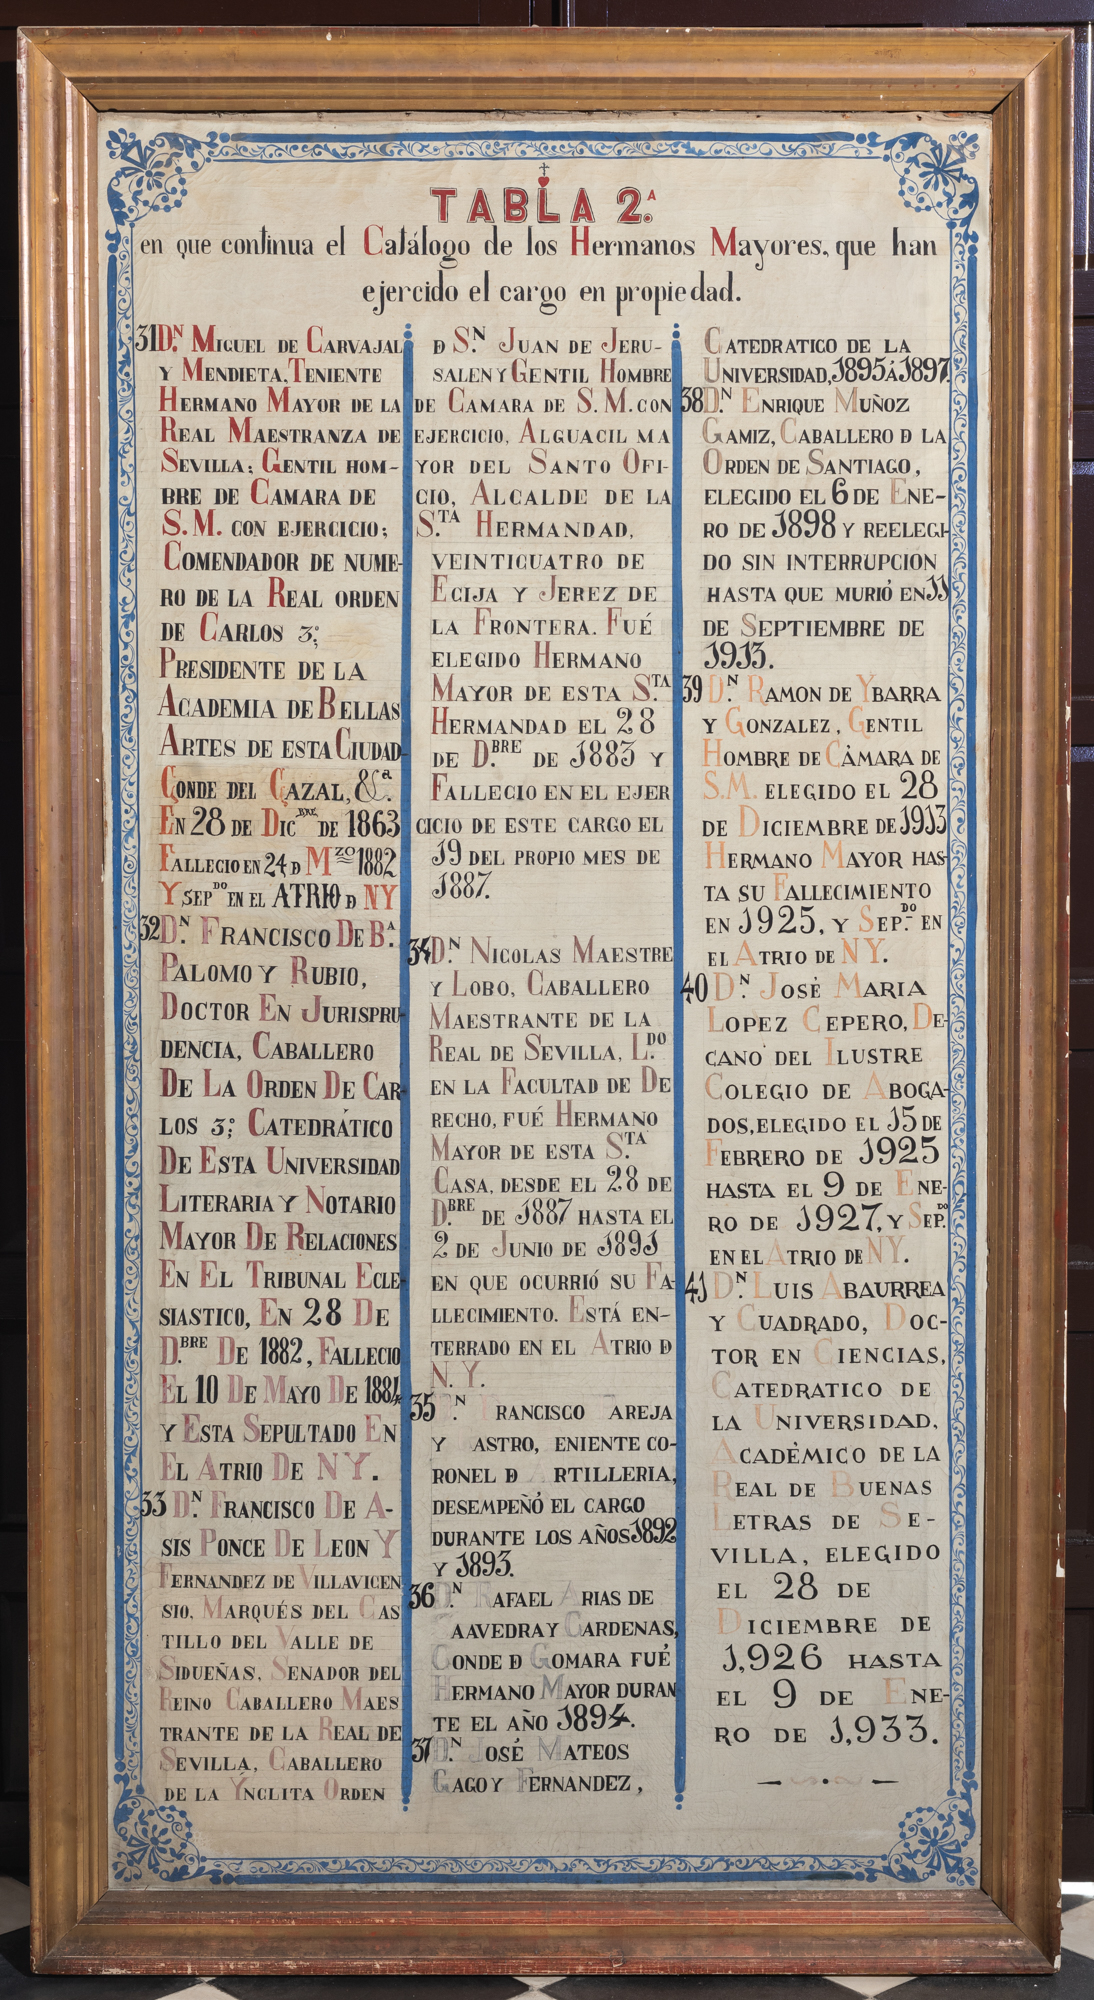 TABLA 2.ª
en que continua el Catálogo de los Hermanos Mayores, que han
ejercido el cargo en propiedad.
31 D.N MIGUEL DE CARVAJAL
Y MENDIETA, TENIENTE
HERMANO MAYOR DE LA
REAL MAESTRANZA DE
SEVILLA; GENTIL HOM-
BRE DE CAMARA DE
S.M. CON EJERCICIO;
COMENDADOR DE NUME-
RO DE LA REAL ORDEN
DE CARLOS 3º;
PRESIDENTE DE LA
ACADEMIA DE BELLAS
ARTES DE ESTA CIUDAD
CONDE DEL CAZAL, &ª.
EN 28 DE DICBRE DE 1863
FALLECIO EN 24 D MZO 1882
Y SEPDO EN EL ATRIO D NY
32 D.N FRANCISCO DE B.A
PALOMO Y RUBIO,
DOCTOR EN JURISPRU-
DENCIA, CABALLERO
DE LA ORDEN DE CAR-
LOS 3º; CATEDRÁTICO
DE ESTA UNIVERSIDAD
LITERARIA Y NOTARIO
MAYOR DE RELACIONES
EN EL TRIBUNAL ECLE-
SIASTICO, EN 28 DE
D.BRE DE 1882, FALLECIO
EL 10 DE MAYO DE 1884
Y ESTA SEPULTADO EN
EL ATRIO DE NY.
33 D.N FRANCISCO DE A-
SIS PONCE DE LEON Y
FERNANDEZ DE VILLAVICEN
SIO, MARQUÉS DEL CAS
TILLO DEL VALLE DE
SIDUEÑAS, SENADOR DEL
REINO CABALLERO MAES
TRANTE DE LA REAL DE
SEVILLA, CABALLERO
DE LA YNCLITA ORDEN
D S.N JUAN DE JERU-
SALEN Y GENTIL HOMBRE
DE CAMARA DE S.M. CON
EJERCICIO, ALGUACIL MA
YOR DEL SANTO OFI-
CIO, ALCALDE DE LA
S.TA HERMANDAD,
VEINTICUATRO DE
ECIJA Y JEREZ DE
LA FRONTERA. FUÉ
ELEGIDO HERMANO
MAYOR DE ESTA S.TA
HERMANDAD EL 28
DE D.BRE DE 1883 Y
FALLECIO EN EL EJER
CICIO DE ESTE CARGO EL
19 DEL PROPIO MES DE
1887.
34 D.N NICOLAS MAESTRE
Y LOBO, CABALLERO
MAESTRANTE DE LA
REAL DE SEVILLA, L.DO
EN LA FACULTAD DE DE
RECHO, FUÉ HERMANO
MAYOR DE ESTA S.TA
CASA, DESDE EL 28 DE
D.BRE DE 1887 HASTA EL
2 DE JUNIO DE 1891
EN QUE OCURRIÓ SU FA-
LLECIMIENTO. ESTÁ EN-
TERRADO EN EL ATRIO D
N.Y.
35 D.N FRANCISCO AREJA
Y ASTRO, ENIENTE CO-
RONEL D ARTILLERIA,
DESEMPEÑÓ EL CARGO
DURANTE LOS AÑOS 1892
Y 1893.
36 D.N RAFAEL ARIAS DE
SAAVEDRA Y CARDENAS,
CONDE D GOMARA FUÉ
HERMANO MAYOR DURAN
TE EL AÑO 1894.
37 D.N JOSÉ MATEOS
GAGO Y FERNANDEZ,
CATEDRATICO DE LA
UNIVERSIDAD, 1895 Á 1897.
38 D.N ENRIQUE MUÑOZ
GAMIZ, CABALLERO D LA
ORDEN DE SANTIAGO,
ELEGIDO EL 6 DE ENE-
RO DE 1898 Y REELEGI-
DO SIN INTERRUPCIÓN
HASTA QUE MURIÓ EN 11
DE SEPTIEMBRE DE
1913.
39 D.N RAMON DE YBARRA
Y GONZALEZ, GENTIL
HOMBRE DE CÁMARA DE
S.M. ELEGIDO EL 28
DE DICIEMBRE DE 1913
HERMANO MAYOR HAS-
TA SU FALLECIMIENTO
EN 1925, Y SEP.DO EN
EL ATRIO DE NY.
40 D.N JOSÉ MARIA
LOPEZ CEPERO, DE-
CANO DEL ILUSTRE
COLEGIO DE ABOGA-
DOS, ELEGIDO EL 15 DE
FEBRERO DE 1925
HASTA EL 9 DE ENE-
RO DE 1927, Y SEP.DO
EN EL ATRIO DE NY.
41 D.N LUIS ABAURREA
Y CUADRADO, DOC-
TOR EN CIENCIAS,
CATEDRATICO DE
LA UNIVERSIDAD,
ACADÈMICO DE LA
REAL DE BUENAS
LETRAS DE SE-
VILLA, ELEGIDO
EL 28 DE
DICIEMBRE DE
1,926 HASTA
EL 9 DE ENE-
RO DE 1,933.